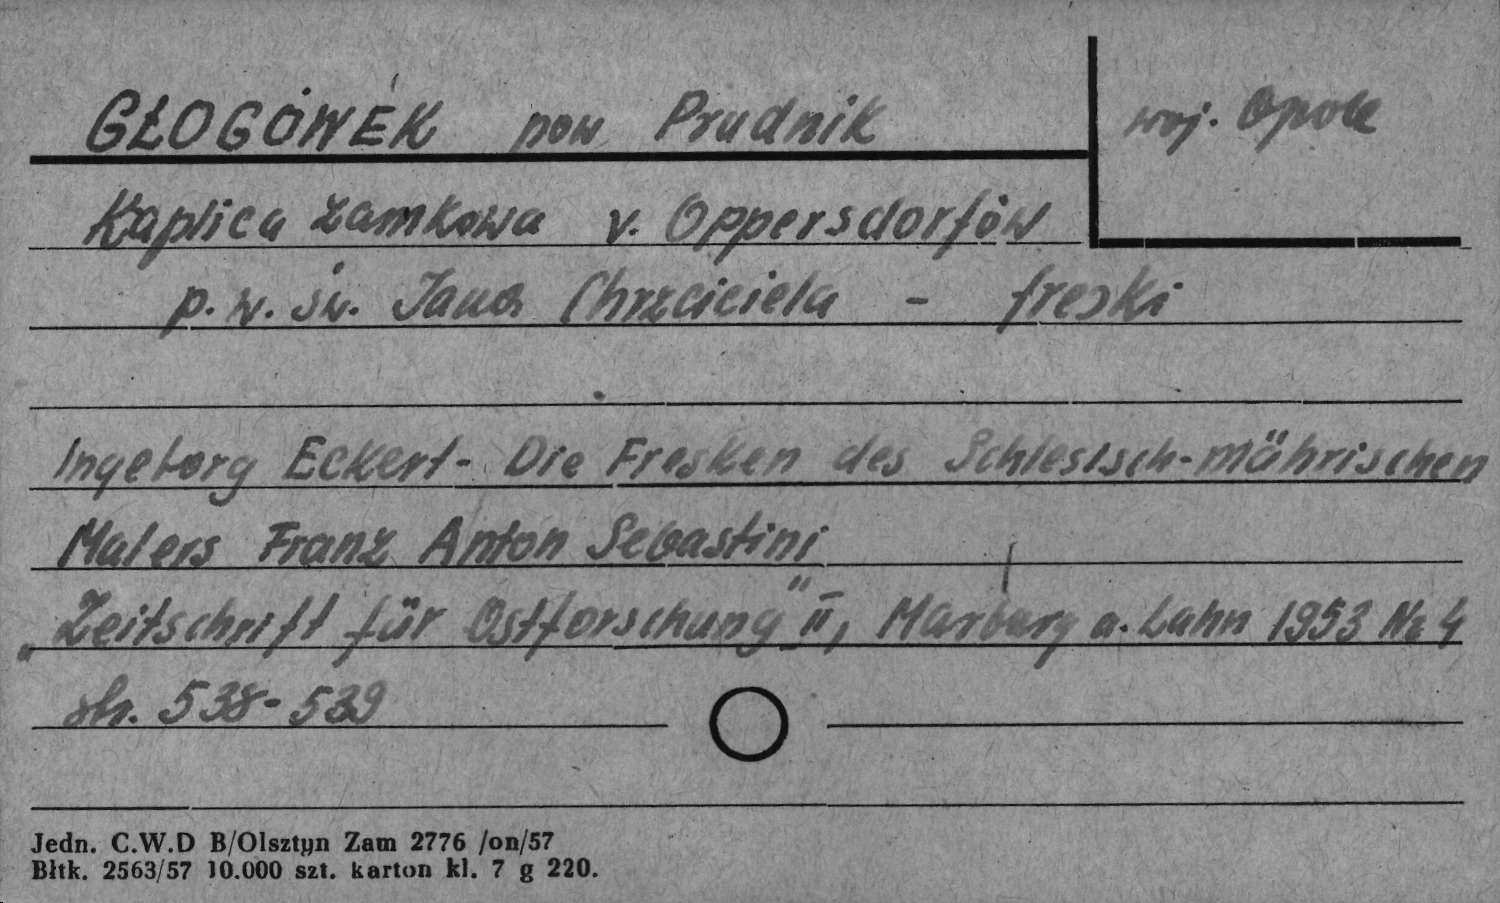 GŁOGÓWEK pow Prudnik woj. Opole
Kaplica zamkowa v. Oppersdorfów
p. w. św. Jana Chrzciciela - freski
Ingeborg Eckert - Die Fresken des Schlesisch-mährischen
Malers Franz Anton Sebastini
„Zeitschrift für Ostforschung" II, Marburg a. Lahn 1953 Nr 4
str. 538-539
Jedn. C.W.D B/Olsztyn Zam 2776 /on/57
Błtk. 2563/57 10.000 szt. karton kl. 7 g 220.